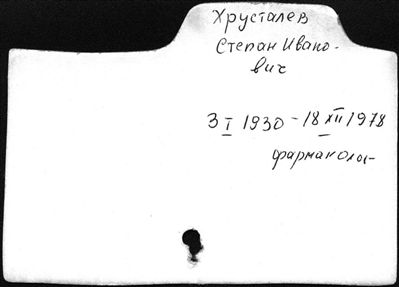 Хрусталев
Степан Ивано-
вич
3 I 1930 - 18 XII 1978
фармаколог